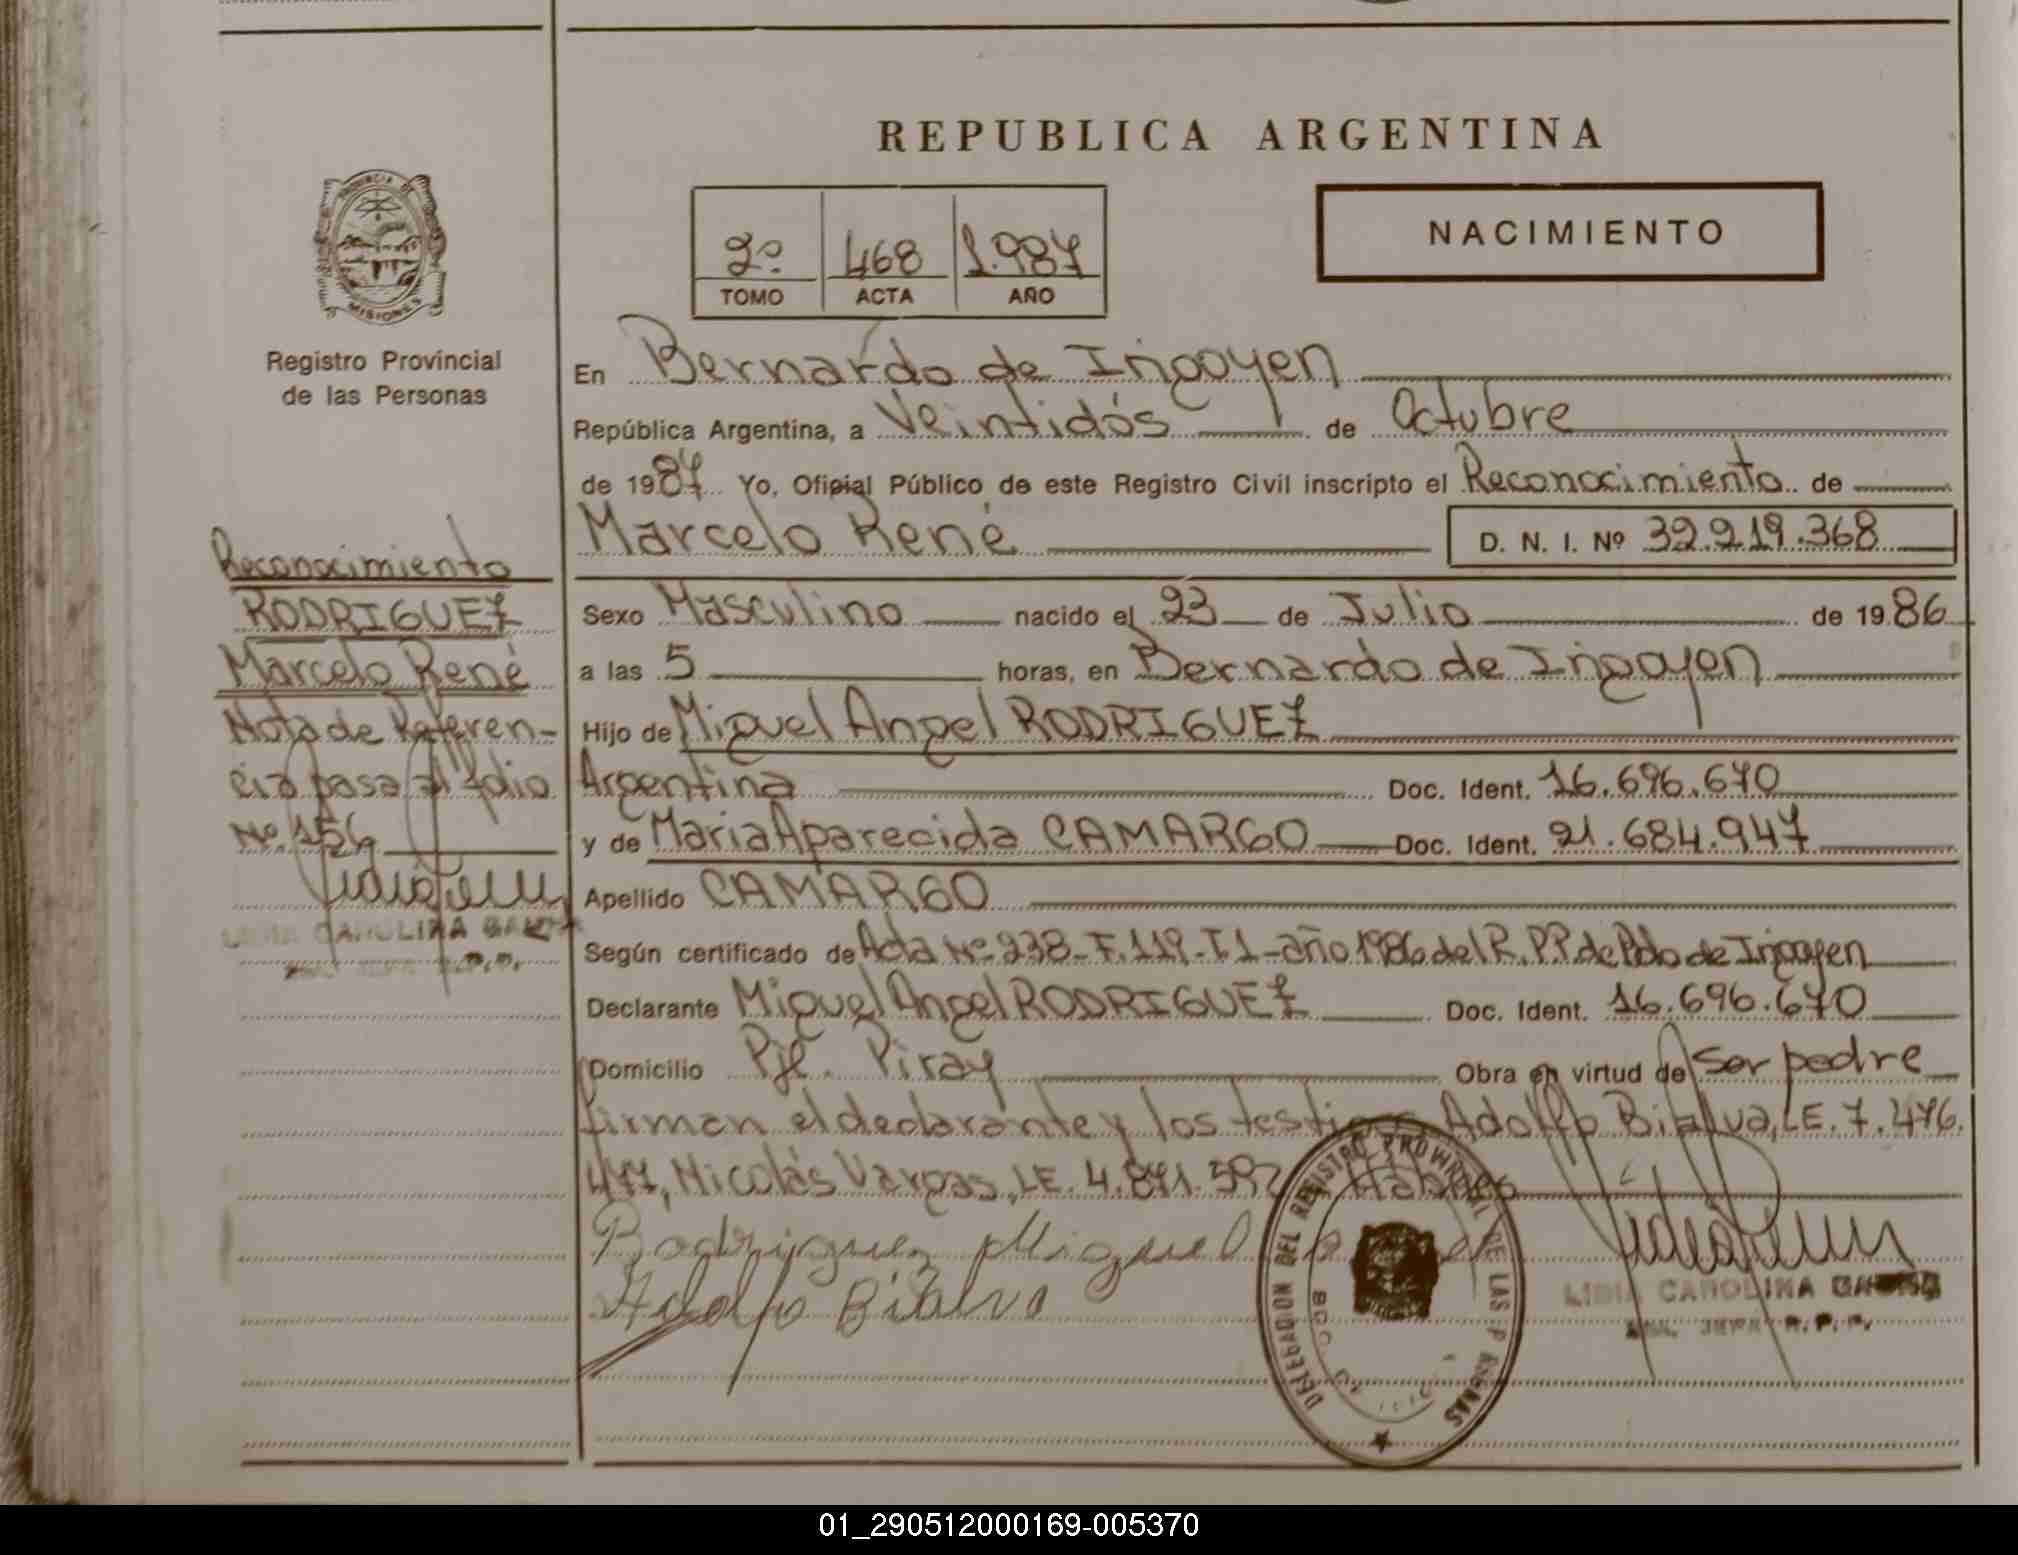 REPUBLICA ARGENTINA
NACIMIENTO
2º 468 1.987
TOMO ACTA AÑO
PROVINCIA DE
MISIONES
Registro Provincial
de las Personas
Reconocimiento
RODRIGUEZ
Marcelo René
Nota de Referen-
cia pasa al folio
Nº 156
LIDIA CAROLINA
En Bernardo de Irigoyen
República Argentina, a Veintidós de Octubre
de 1987 Yo, Oficial Público de este Registro Civil inscripto el Reconocimiento de
Marcelo René D. N. I. Nº 32.219.368
Sexo Masculino nacido el 23 de Julio de 1986
a las 5 horas, en Bernardo de Irigoyen
Hijo de Miguel Angel RODRIGUEZ
Argentina Doc. Ident. 16.696.670
y de Maria Aparecida CAMARGO Doc. Ident. 21.684.947
Apellido CAMARGO
Según certificado de Acta Nº 238-F.119-T.1-año 1986 del R.P.P. de Bdo de Irigoyen
Declarante Miguel Angel RODRIGUEZ Doc. Ident. 16.696.670
Domicilio Pje. Piray Obra en virtud de Ser padre
firman el declarante y los testigos Adolfo Bialva, LE. 7.476.
477, Nicolás Vargas, LE. 4.871.592
Rodriguez Miguel
Adolfo Bialva
DELEGACION DEL REGISTRO PROVINCIAL DE LAS PERSONAS
LIDIA CAROLINA
R.P.P.
01_290512000169-005370